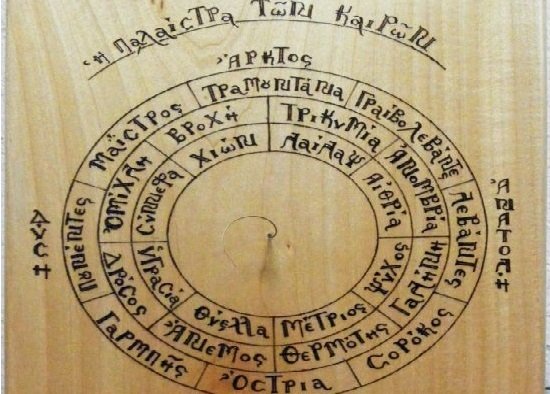 Ἡ Παλαίστρα τῶν Καιρῶν
Ἄρκτος
Τραμουντάνα
Γραιβολεβάντες
Λεβάντες
Σορόκος
Ὄστρια
Γαρμπῆς
Πουνέντες
Μαΐστρος
Βροχή
Τρικυμία
Ἀνομβρία
Γαλήνη
Θερμότης
Ἄνεμος
Δρόσος
Ὁμίχλη
Χιών
Λαίλαψ
Αἰθρία
Ψῦχος
Μέτριος
Θύελλα
Ὑγρασία
Σύννεφα
Ἀνατολή
Δύση